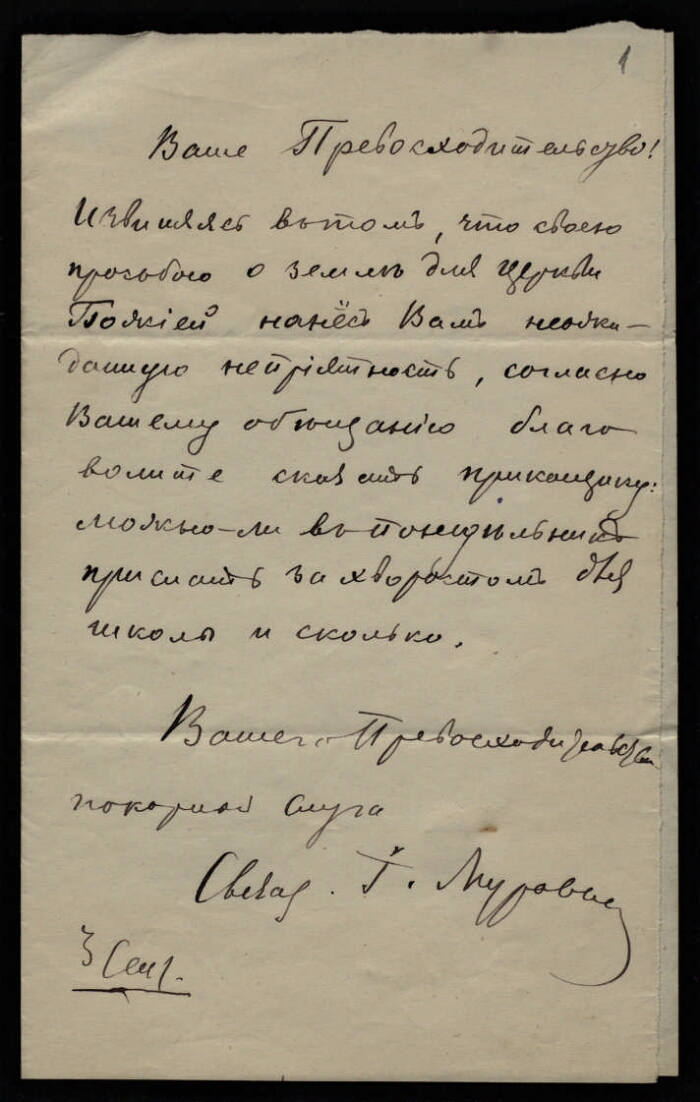 1
Ваше Превосходительство!
Извиняясь въ томъ, что своею
просьбою о землѣ для Церкви
Божіей нанёсъ Вамъ неожи-
данную непріятность, согласно
Вашему обѣщанію благо-
волите сказать прикащику:
можно-ли въ понедѣльникъ
прислать за хворостомъ для
школы и сколько.
Вашего Превосходительства
покорный слуга
Свящ. І.
3 Сент.